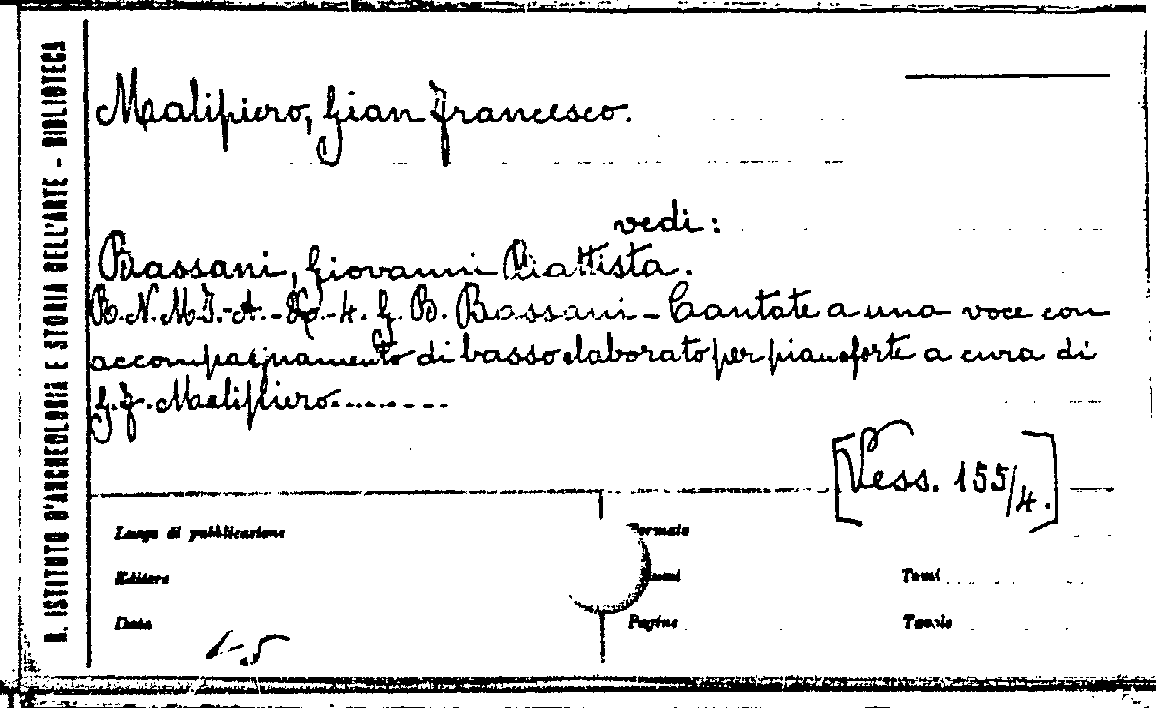 R. ISTITUTO D'ARCHEOLOGIA E STORIA DELL'ARTE - BIBLIOTECA
Malipiero, Gian Francesco.
vedi:
Bassani, Giovanni Battista.
G. B. Bassani - Cantate a una voce con
accompagnamento di basso elaborato per pianoforte a cura di
G. F. Malipiero.........
[Vess. 155/4.]
Luogo di pubblicazione
Formato
Editore
Tomi
Data
Pagine
Tavole